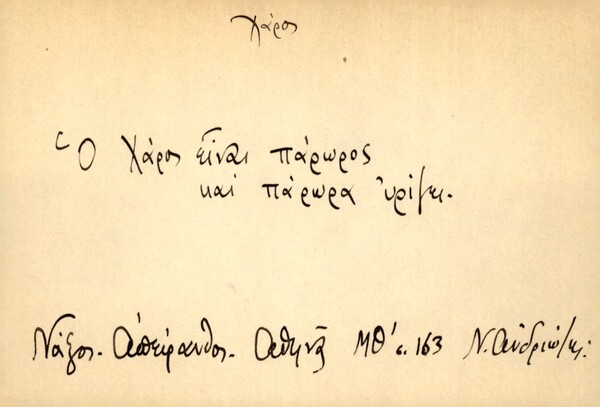 Χάρος
Ὁ Χάρος εἶναι πάρωρος
καὶ πάρωρα
Νάξος. Ἀπείρανθος. Ἀθηνᾶ ΜΘ' σ. 163 Ν. Ἀνδριώτης